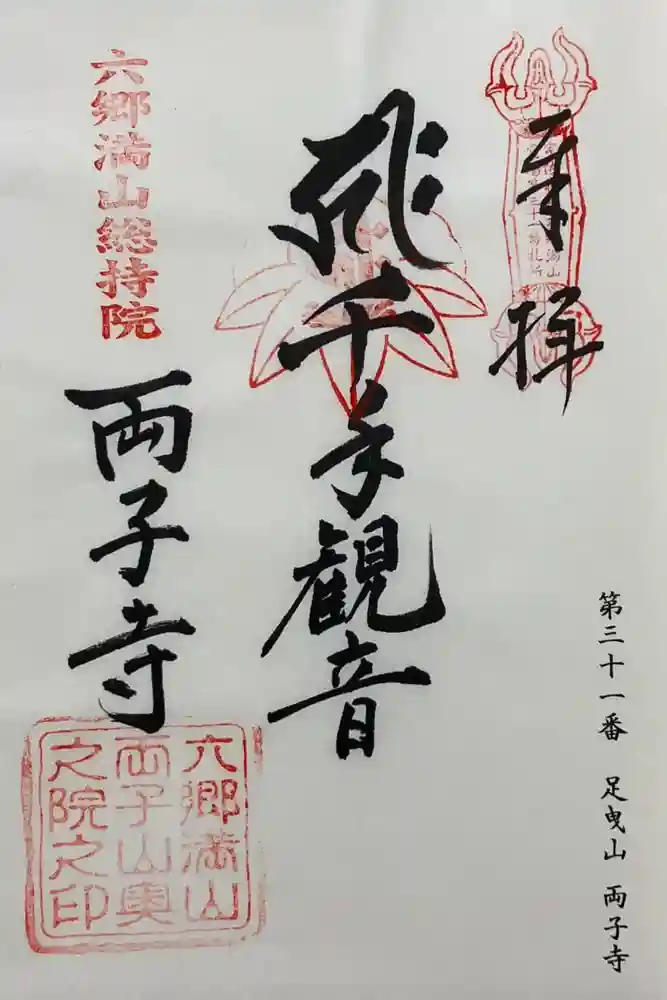 奉拝
第三十一番 足曳山 両子寺
千手観音
六郷満山総持院
両子寺
六郷満山
両子山奥
之院之印